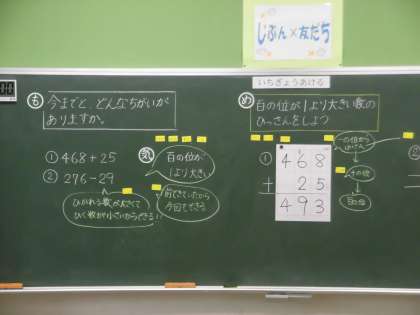 じぶん×友だち
いちぎょうあける
も 今までと、どんなちがいが
ありますか。
① 468+25
② 276-29
気 百の位が
1より大きい
ひかれる数が大きくて
ひく数が小さいからできる!!
前できていたから
今回もできる
め 百の位が1より大きい数の
ひっさんをしよう
一の位から
けいさん
十の位
百の位
①
1
468
+ 25
493
②